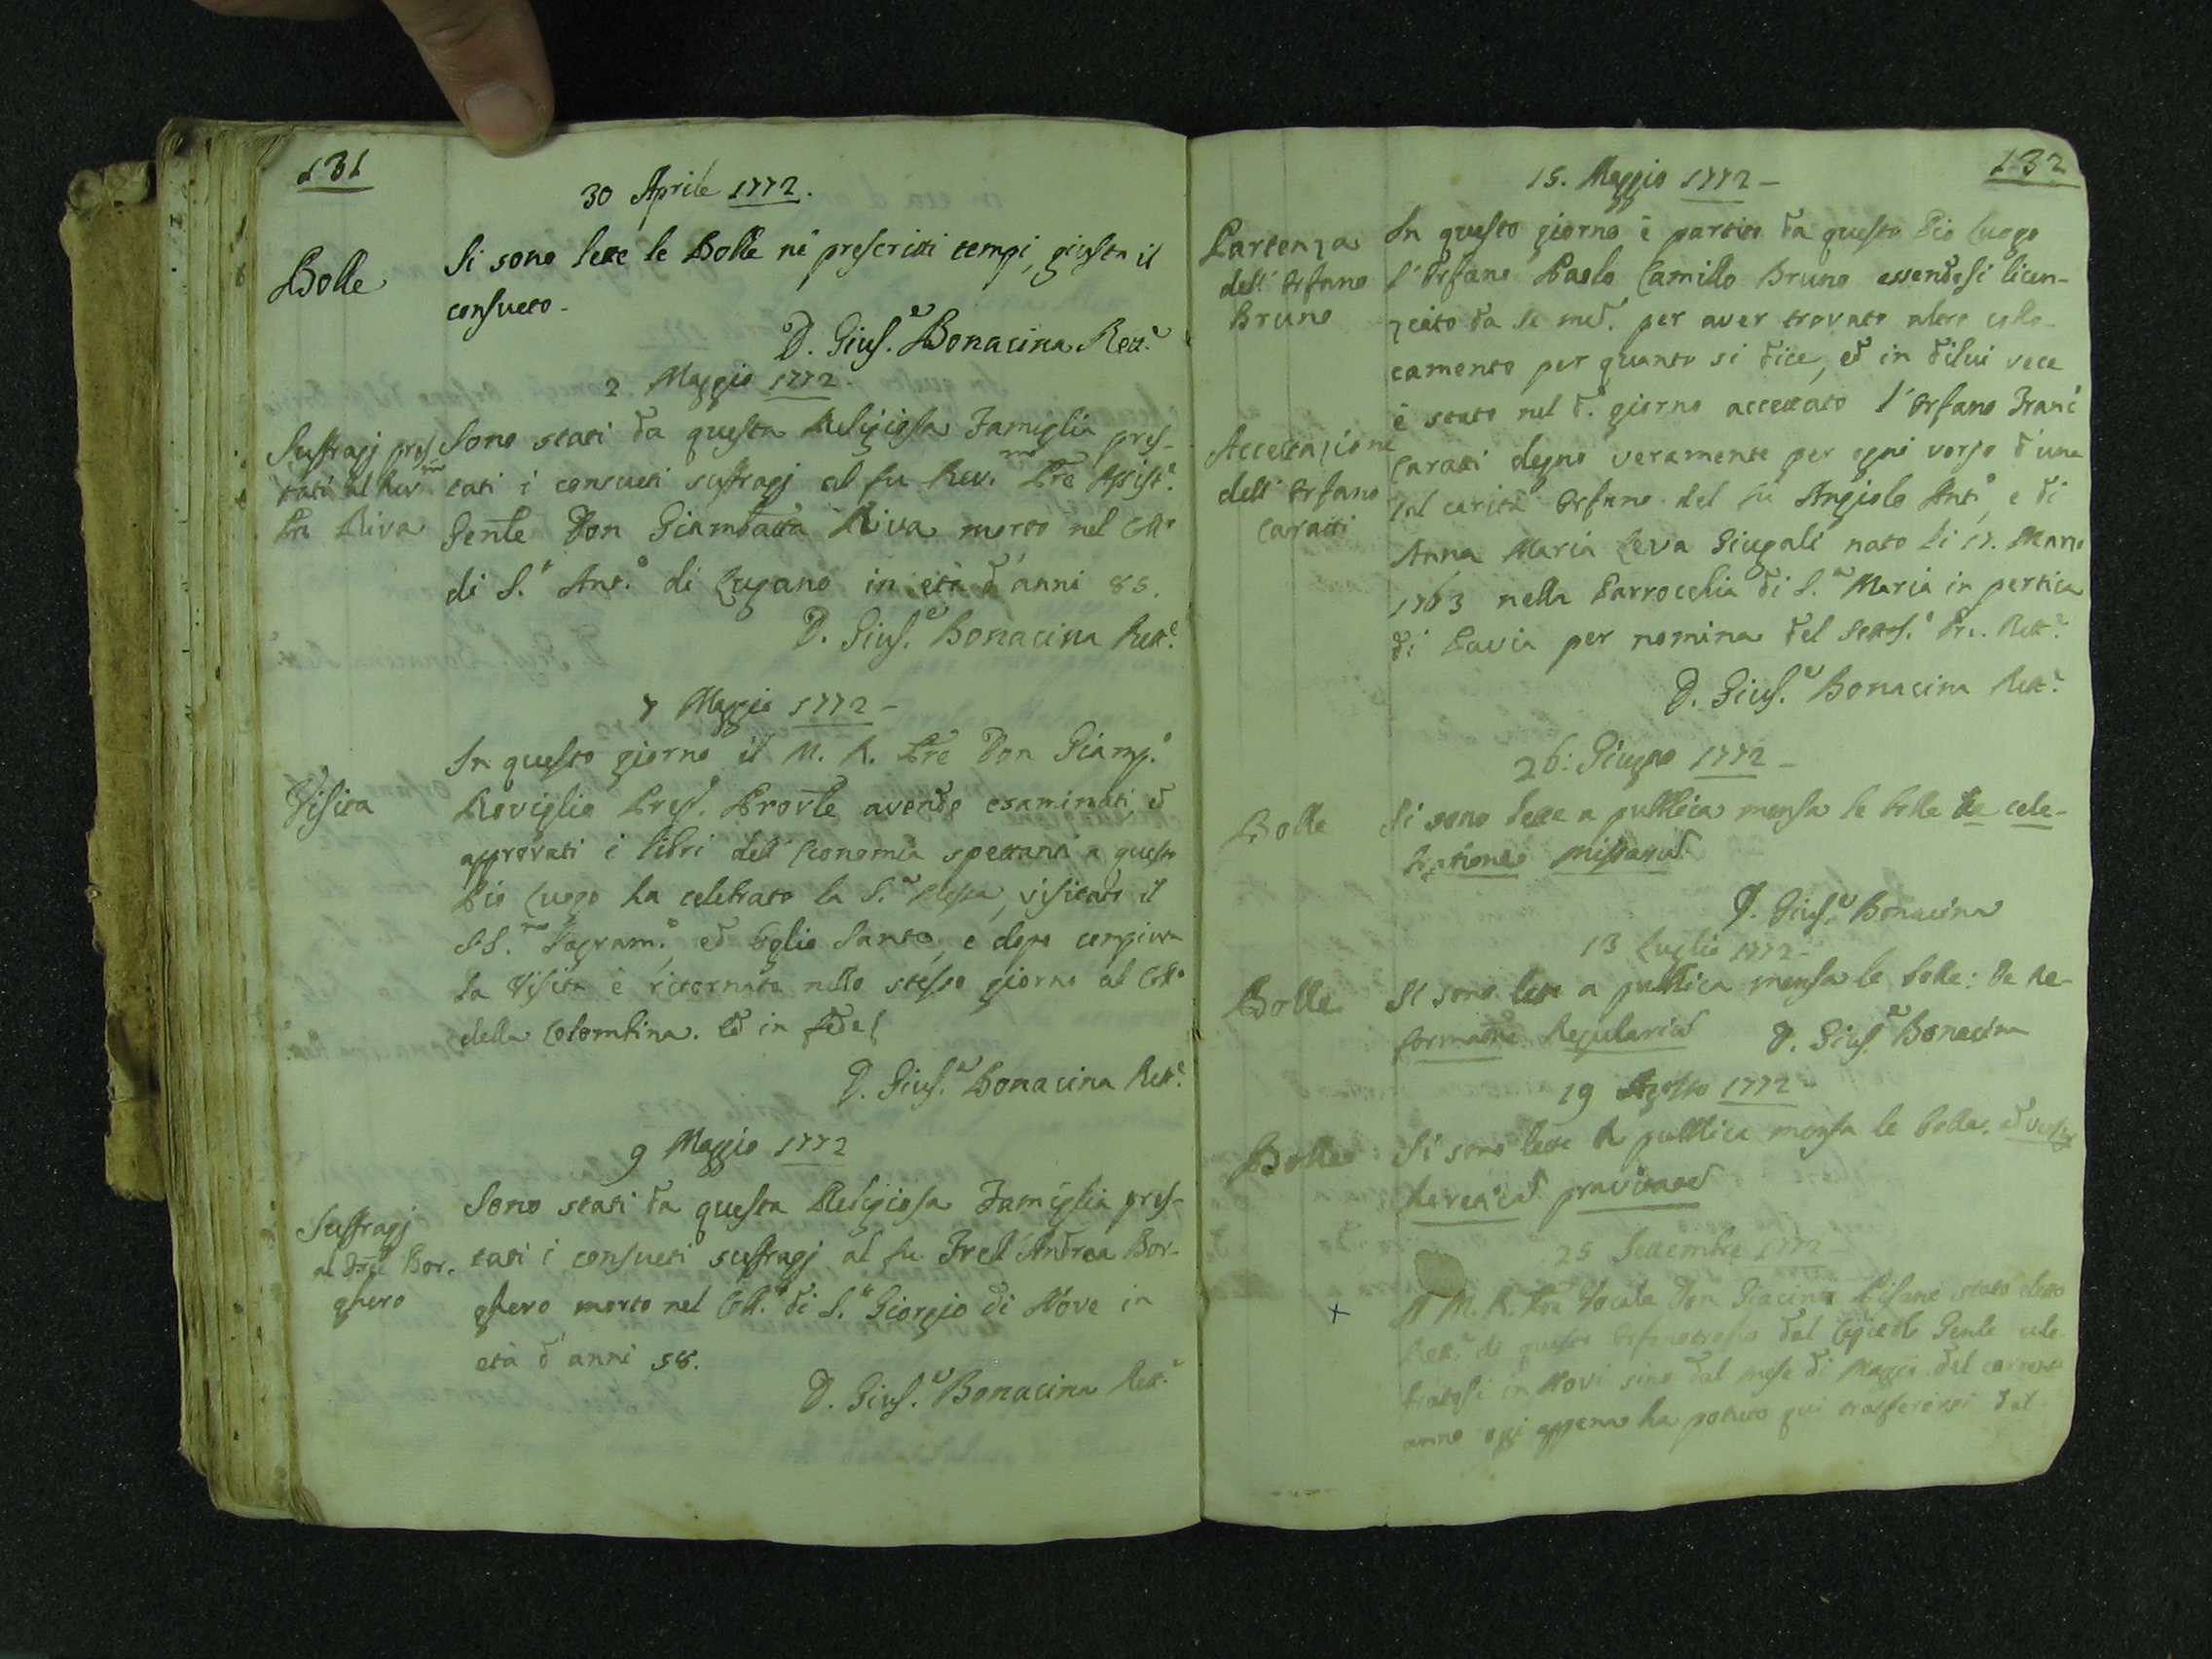 131
30 Aprile 1772.
Bolle
Si sono lette le Bolle né prescritti tempi, giusta il
consueto.
D. Gius.e Bonacina Rett.e
2 Maggio 1772.
Suffragj pres
tati al Rev.mo
Pre Riva
Sono stati da questa Religiosa Famiglia pres-
tati i consueti suffragj al fu Rev.mo Pre Assist.e
Genle Don Giambatta Riva morto nel Coll.o
di S.t Ant.o di Lugano in età d'anni 85.
D. Gius.e Bonacina Rett.e
7 Maggio 1772 -
Visita
In questo giorno il M. R. Pre Don Giamp.o
Roviglio Pres. Provle avendo esaminati, ed
approvati i libri dell' Economia spettanti a questo
Pio Luogo ha celebrato la S.a Messa, visitato il
SS.mo Sagram.o, ed Oglio Santo, e dopo compiuta
la Visita è ritornato nello stesso giorno al Coll.o
della Colombina. Ed in fede
D. Gius.e Bonacina Rett.e
9 Maggio 1772
Suffragj
al Frel Bor-
ghero
Sono stati da questa Religiosa Famiglia pres-
tati i consueti suffragj al fu Frel Andrea Bor-
ghero morto nel Coll.o di S.n Giorgio di Nove in
età d'anni 58.
D. Gius.e Bonacina Rett.e
132
15. Maggio 1772 -
Partenza
dell' Orfano
Bruno
In questo giorno è partito da questo Pio Luogo
l'Orfano Paolo Camillo Bruno essendosi licen-
ziato da se med. per aver trovato altro collo-
camento per quanto si dice, ed in di lui vece
è stato nel d. giorno accettato l'Orfano Franc
Accettazione
dell' Orfano
Caratti
Caratti degno veramente per ogni verso d'una
tal carità Orfano del fu Angiolo Ant.o, e di
Anna Maria Ceva Giugali nato li 17. Marzo
1763 nella Parrocchia di S.a Maria in pertica
di Pavia per nomina del Pre. Rett.e
D. Gius.e Bonacina Rett.e
26: Giugno 1772 -
Bolle
Si sono lette a pubblica mensa le bolle de cele-
bratione Missarum
D. Gius.e Bonacina
13 Luglio 1772 -
Bolle
Si sono lette a pubblica mensa le bolle: De Re-
formatne Regularium
D. Gius.e Bonacina
19 Agosto 1772 -
Bolle
Si sono lette a pubblica mensa le bolle.
hereticam pravitatem
25 Settembre 1772 -
+
Il M. R. Pre Vocale Don Giacinto Pisani stato eletto
Rett.e di questo Orfanotrofio dal Capitolo Genle cele-
bratosi in Novi sino dal mese di Maggio del corrente
anno oggi appena ha potuto qui trasferirsi dal